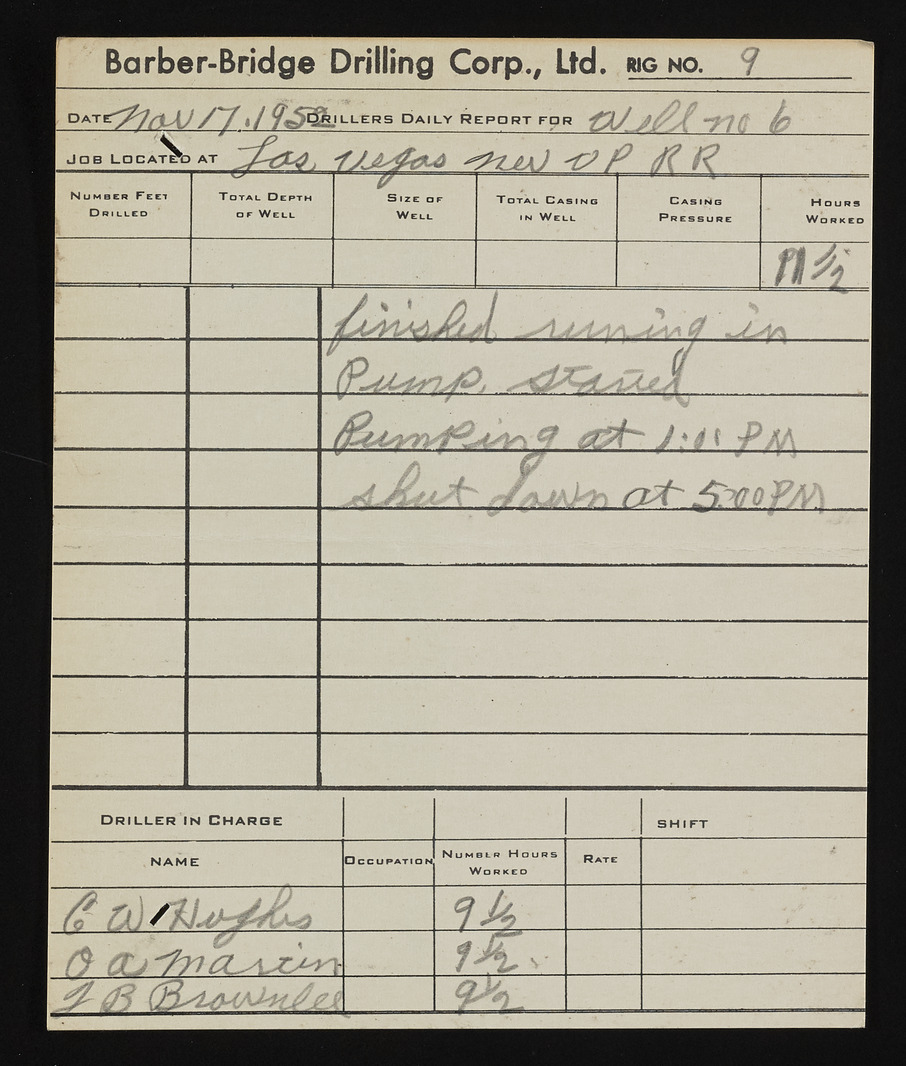 Barber-Bridge Drilling Corp., Ltd. RIG NO. 9
DATE Nov 17, 1952 DRILLERS DAILY REPORT FOR Well no 6
JOB LOCATED AT Las Vegas Nev U P R R
NUMBER FEET DRILLED TOTAL DEPTH OF WELL SIZE OF WELL TOTAL CASING IN WELL CASING PRESSURE HOURS WORKED
1/2
finished runing in
Pump. Started
Pumping at PM
shut down at 5:00 PM
DRILLER IN CHARGE SHIFT
NAME OCCUPATION NUMBER HOURS WORKED RATE
C W Hughes 9 1/2
O A Martin 9 1/2
B Brownlee 9 1/2